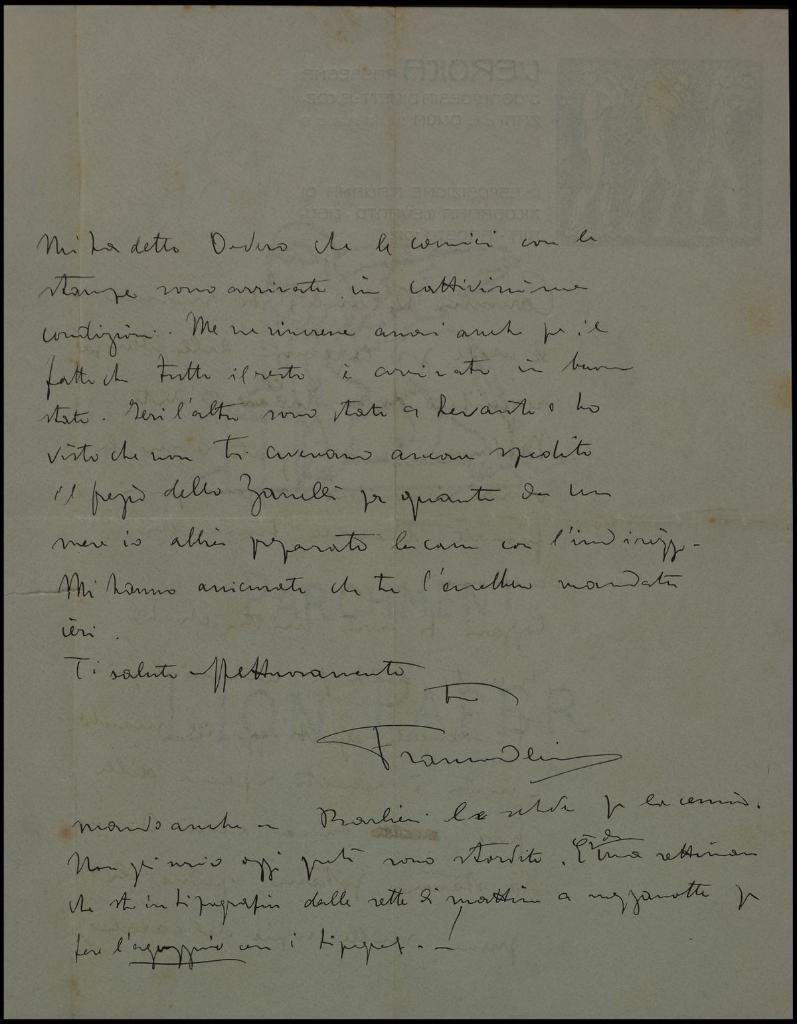 Mi ha detto Oddero che le cornici con le
stampe sono arrivate in cattivissime
condizioni. Me ne rincresce assai anche per il
fatto che tutto il resto è arrivato in buono
stato. Ieri l'altro sono stato a Levanto e ho
visto che non ti avevano ancora spedito
il fregio dello Zanelli per quanto da un
mese io abbia preparato la cassa con l'indirizzo.
Mi hanno assicurato che te l'avrebbero mandato
ieri.
Ti saluto affettuosamente
tuo
Franco Oliva
mando anche a Barbieri la scheda per
Non gli scrivo oggi sono stordito. È una settimana
che sto in tipografia dalle sette di mattina a mezzanotte per
fare l'aguzzino con i tipografi. - !
L'EROICA RASSEGNA